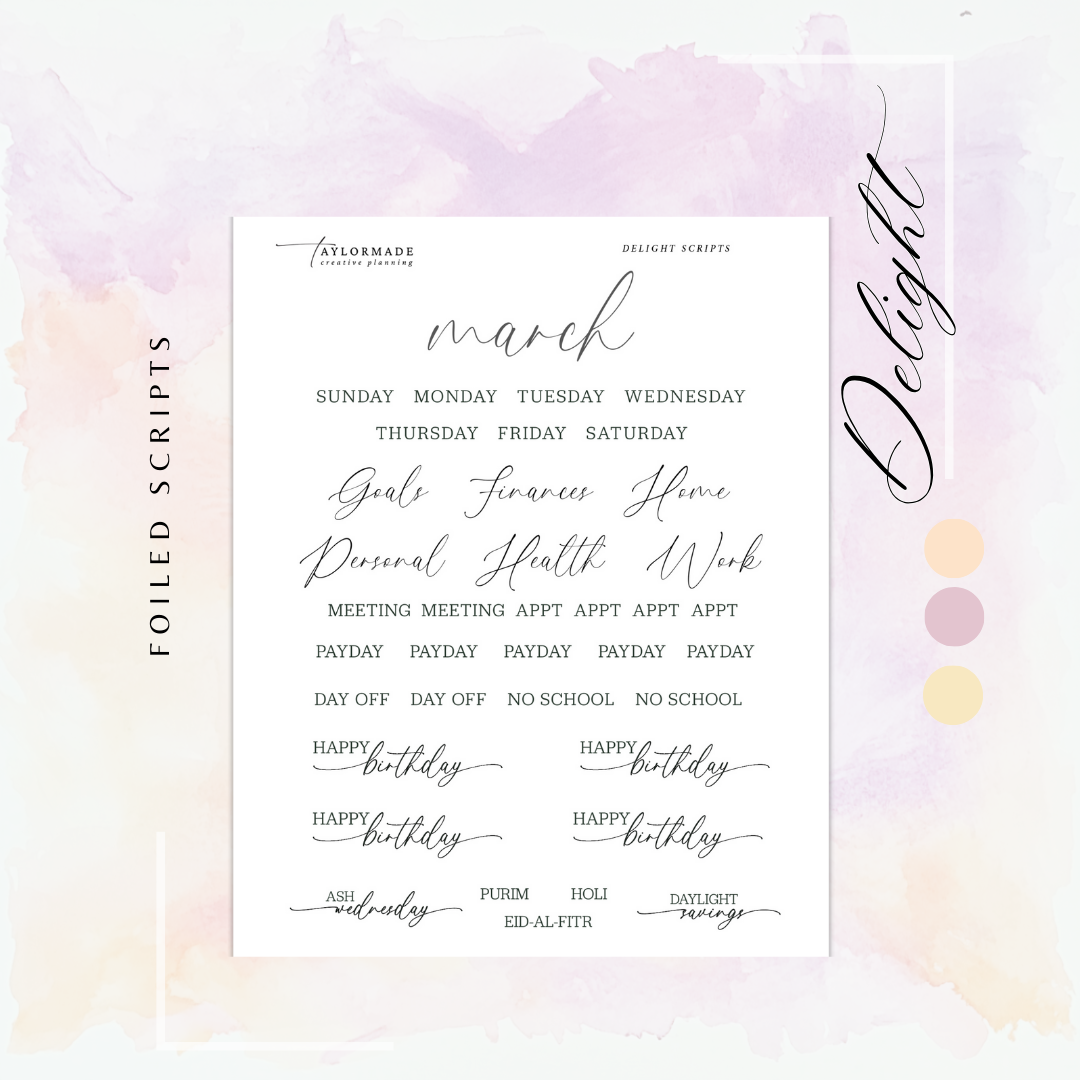 TAYLORMADE
creative planning
DELIGHT SCRIPTS
march
SUNDAY MONDAY TUESDAY WEDNESDAY
THURSDAY FRIDAY SATURDAY
Goals Finances Home
Personal Health Work
MEETING MEETING APPT APPT APPT APPT
PAYDAY PAYDAY PAYDAY PAYDAY PAYDAY
DAY OFF DAY OFF NO SCHOOL NO SCHOOL
HAPPY birthday HAPPY birthday
HAPPY birthday HAPPY birthday
ASH wednesday
PURIM HOLI
EID-AL-FITR
DAYLIGHT savings
FOILED SCRIPTS
Delight